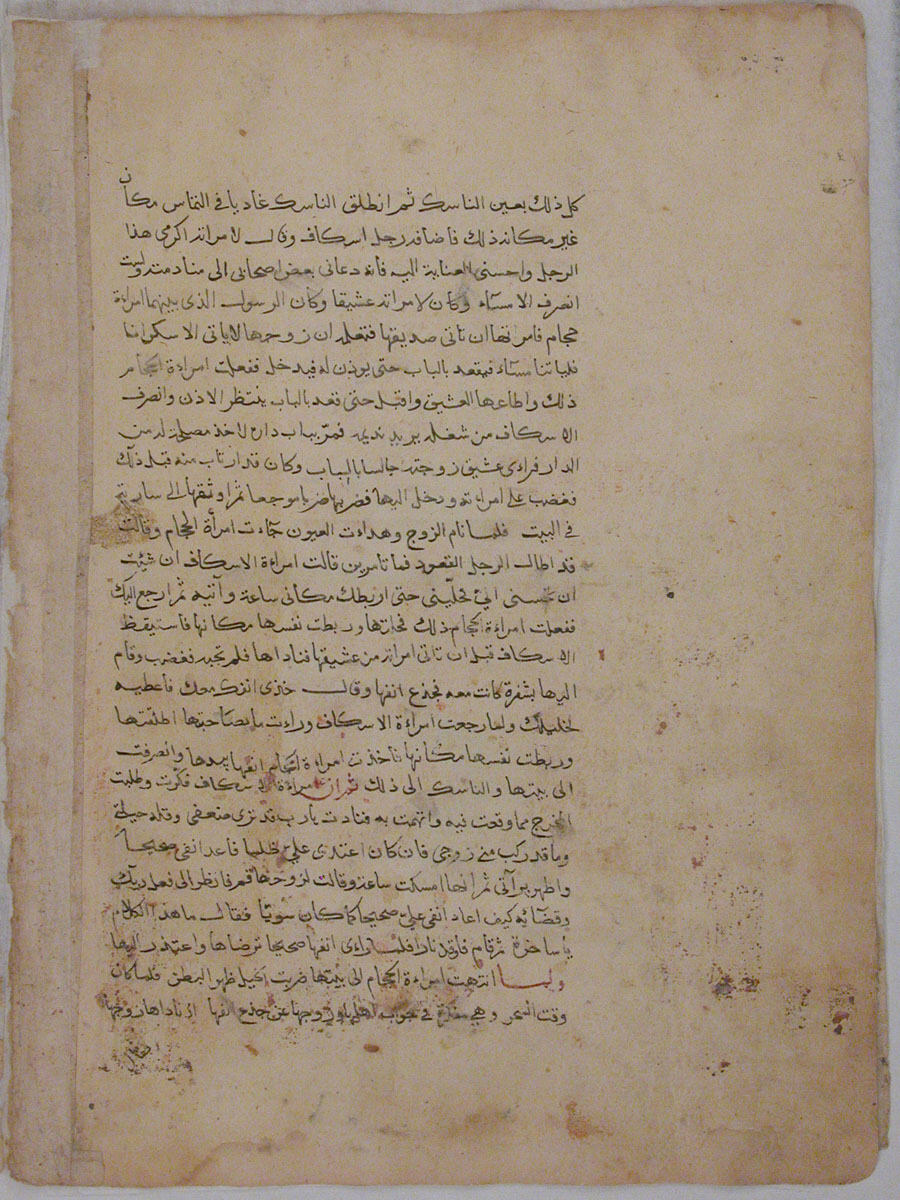 كل ذلك بعين الناسك ثم انطلق الناسك غاديا في التماس مكان
غير مكانه ذلك فاضافه رجل اسكاف وقال لامراته اكرمي هذا
الرجل واحسني العناية اليه فانه دعاني بعض اصحابي الى منادمته ولست
انصرف الا مسآء وكان لامراته عشيقا وكان الرسول الذي بينهما امراءة
حجام فامرتها ان تاتي صديقها فتعلمه ان زوجها لا ياتي الا سكرانا
فلياتنا مسآء فيقعد بالباب حتى يوذن له فيدخل ففعلت امراءة الحجام
ذلك واطاعها العشيق واقبل حتى قعد بالباب ينتظر الاذن وانصرف
الاسكاف من شغله يريد نديمه فمرّ بباب داره لاخذ مصلحة له من
الدار فراءى عشيق زوجته جالسا بالباب وكان قد ارتاب منه قبل ذلك
فغضب على امراءته ودخل اليها فضربها ضربا موجعا ثم اوثقها الى سارية
في البيت فلما نام الزوج وهداءت العيون جاءت امرأة الحجام وقالت
قد اطال الرجل القعود فما تامرين قالت امراءة الاسكاف ان شيت
ان تحسني اليّ تحلّيني حتى اربطك مكاني ساعة وآتيه ثم ارجع اليك
ففعلت امراءة الحجام ذلك فحلتها وربطت نفسها مكانها فاستيقظ
الاسكاف قبل ان تاتي امراته من عشيقها فناداها فلم تجبه فغضب وقام
اليها بشفرة كانت معه فجذع انفها وقال خذي انفك معك فاعطيه
لخليلك ولما رجعت امراءة الاسكاف وراءت ما بصاحبتها اطلقتها
وربطت نفسها مكانها فاخذت امراءة الحجام انفها بيدها وانصرفت
الى بيتها والناسك الى ذلك ثم ان امراءة الاسكاف فكرت وطلبت
المخرج مما وقعت فيه واتهمت به فنادت يارب قد ترى ضعفي وقلة حيلتي
وما قد ركب مني زوجي فان كان اعتدى عليّ ظلما فاعد انفي صحيحا
واظهر برآتي ثم انها امسكت ساعة وقالت لزوجها قم فانظر الى فعل ربك
وقضائه كيف اعاد انفي عليّ صحيحا كما كان سويّا فقال ما هذا الكلام
يا ساحرة ثم قام فاوقد نارا فلما راءى انفها صحيحا ترضاها واعتذر اليها
ولما انتهت امراءة الحجام الى بيتها ضربت الحيل ظهرا لبطن فلما كان
وقت السحر وهي مفكرة في جواب اهلها وزوجها عن جذع انفها اذ ناداها زوجها